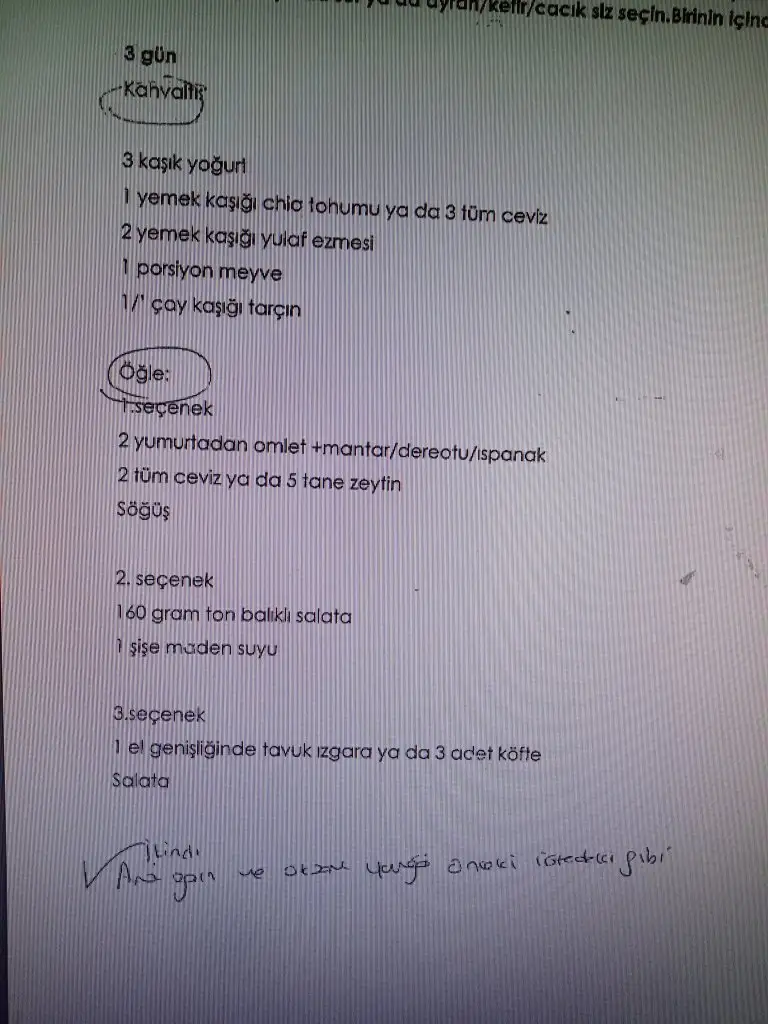 ya da ayran/kefir/cacık siz seçin.Birinin içinc
3 gün
Kahvaltiş
3 kaşık yoğurt
1 yemek kaşığı chia tohumu ya da 3 tüm ceviz
2 yemek kaşığı yulaf ezmesi
1 porsiyon meyve
1/' çay kaşığı tarçın
Öğle:
1.seçenek
2 yumurtadan omlet +mantar/dereotu/ıspanak
2 tüm ceviz ya da 5 tane zeytin
Söğüş
2. seçenek
160 gram ton balıklı salata
1 şişe maden suyu
3.seçenek
1 el genişliğinde tavuk ızgara ya da 3 adet köfte
Salata
İkindi
Ara öğün ve akşam yemeği önceki gibi